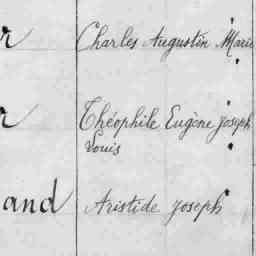 r Charles Augustin Marie
r Théophile Eugène Joseph
Louis
and Aristide Joseph